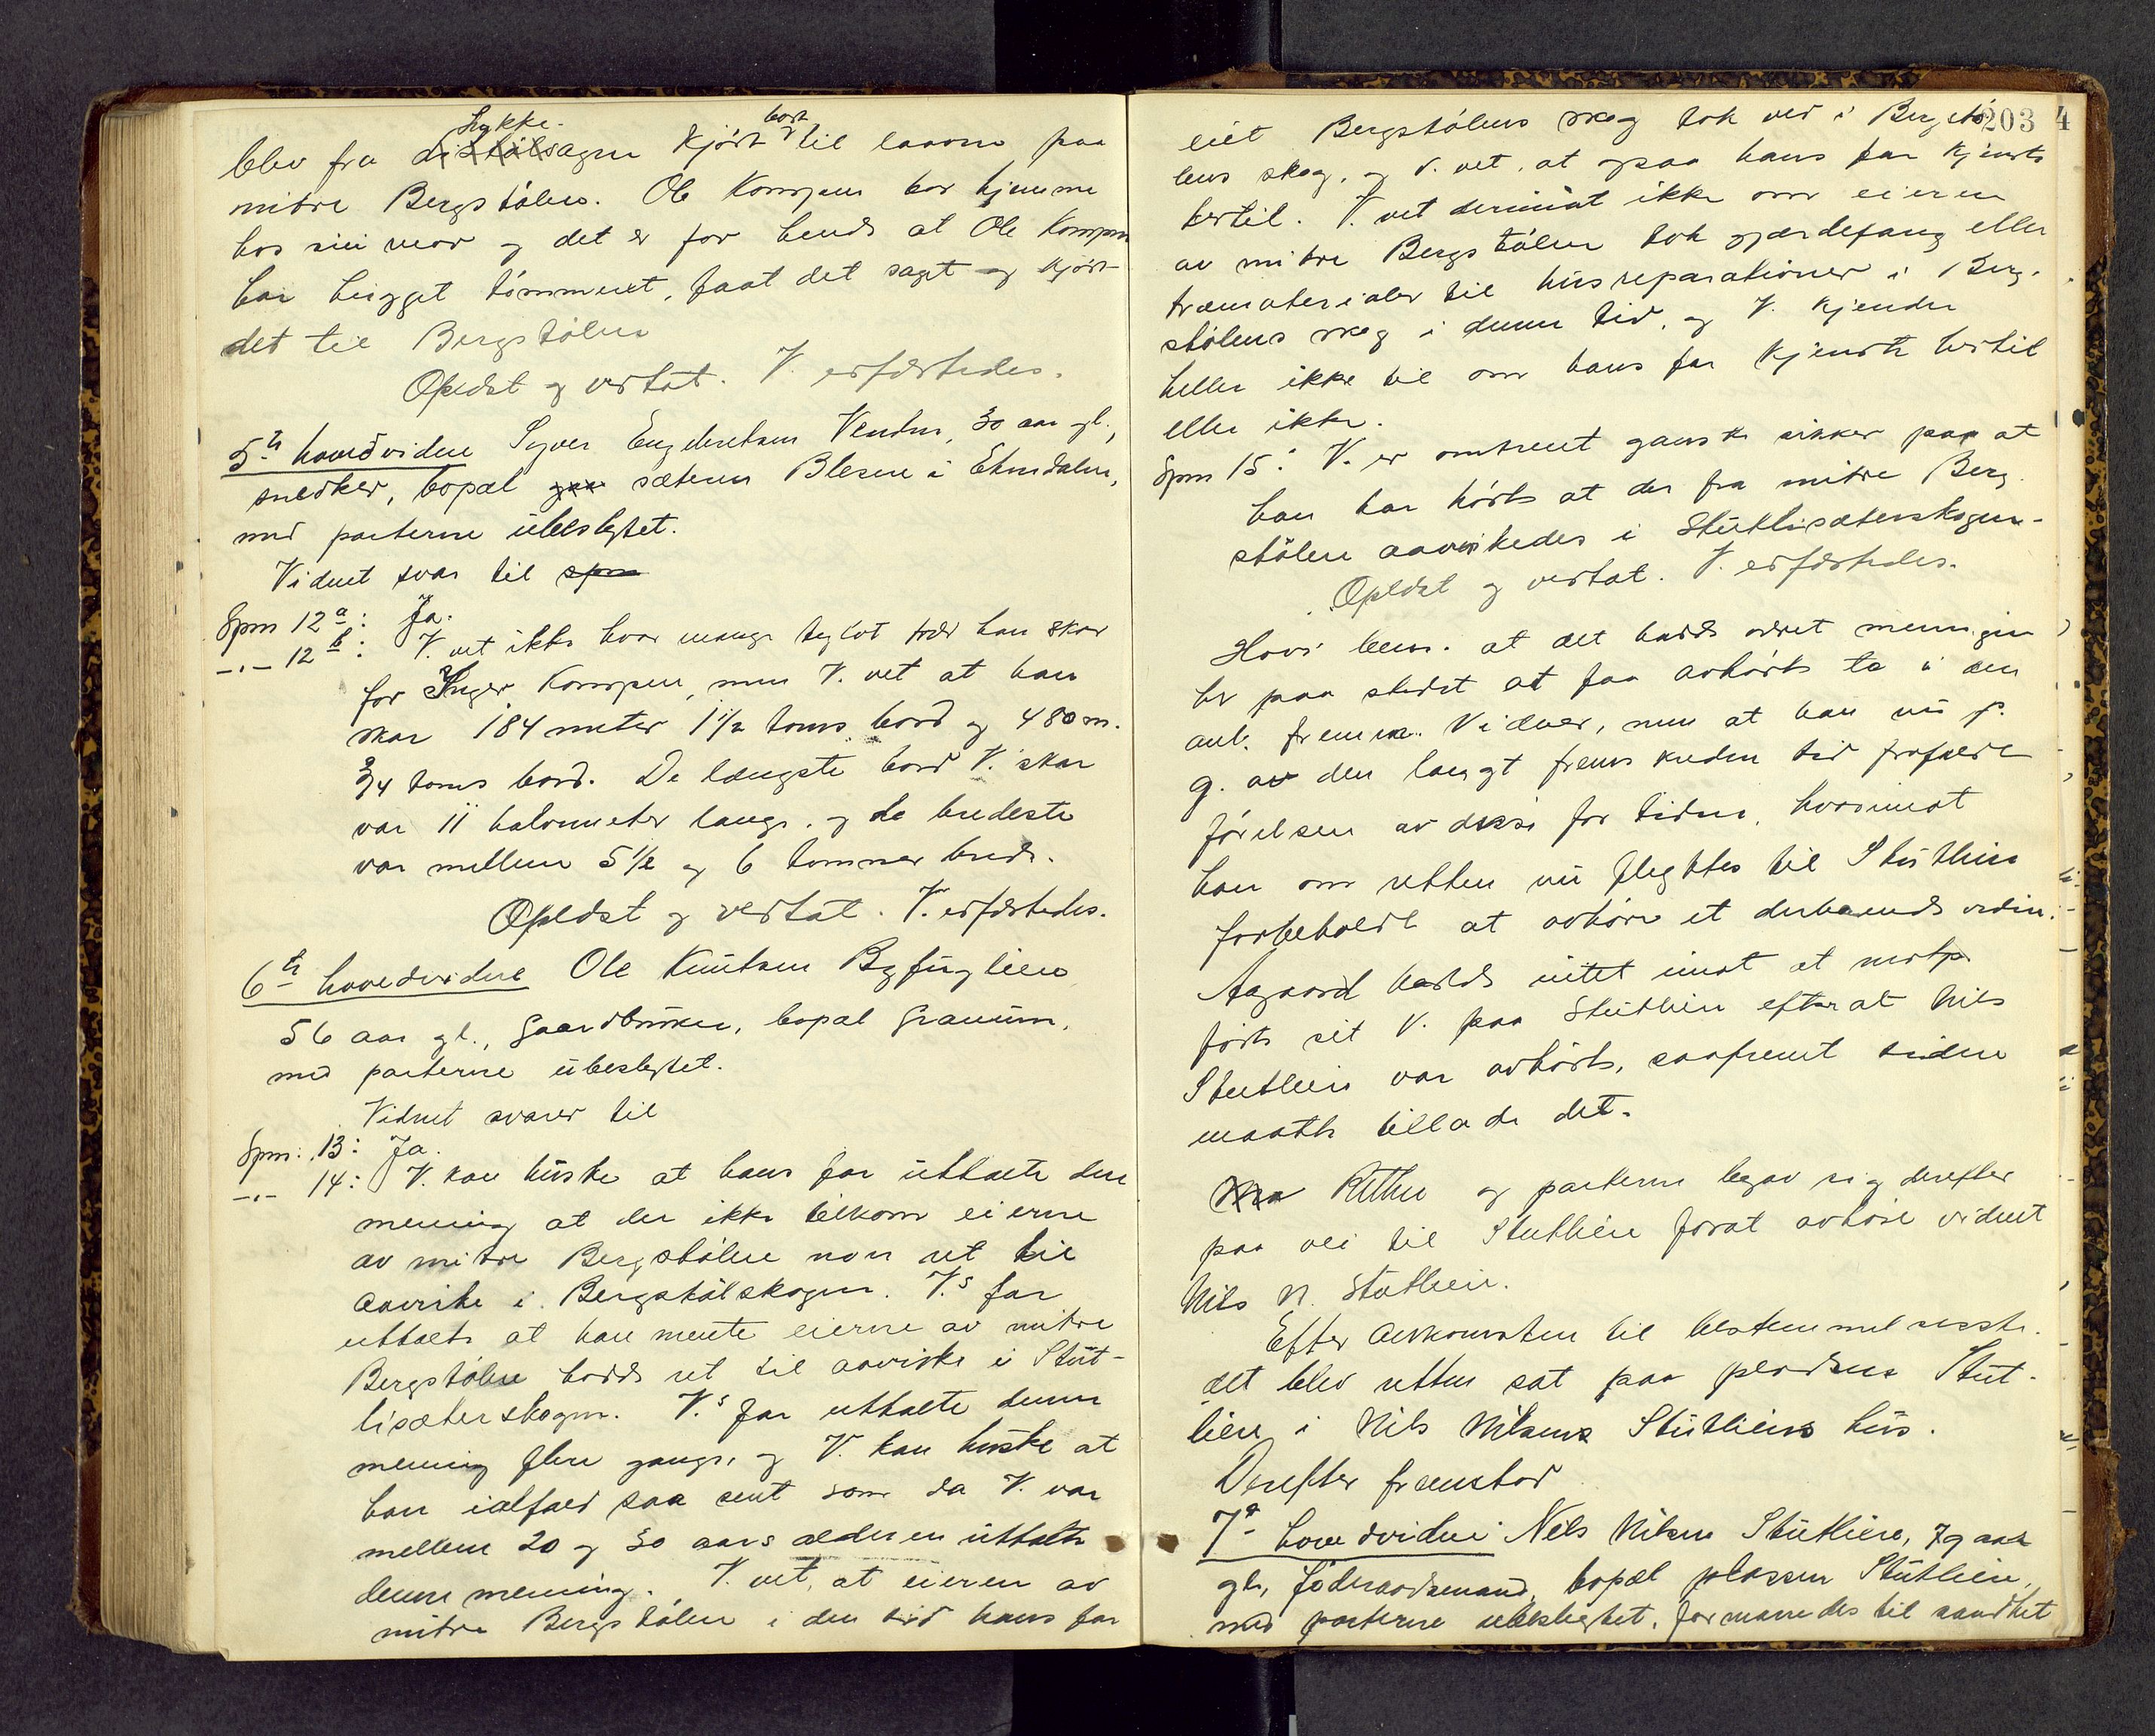 Lykke-
blev fra distölsagen kjört bort til laaven paa
mitre Bergstölen. Ole Kompen bor hjemme
hos sin mor og det er for hende at Ole Kompen
har hugget tömmeret, faat det saget og kjört
det til Bergstölen
Oplæst og vertat. V. erfærtedes.
5te hovedvidne Syver Engebretsen Venden, 30 aar gl.,
snedker, bopæl sæteren Blesene i Etnedalen,
med parterne ubeslegtet.
Vidnet svar til spm
Spm 12a: Ja.
-"- 12b: V. vet ikke hvor mange tylvt bord han skar
for Inger Kompen, men V. vet at han
skar 184 meter 1 1/2 toms bord og 480 m.
3/4 toms bord. De længste bord V. skar
var 11 halvmeter lange, og de bredeste
var mellem 5 1/2 og 6 tommer brede.
Oplæst og vertat. V. erfærtedes.
6te hovedvidne Ole Knutsen Byfuglien
56 aar gl., gaardbruker, bopæl Granum,
med parterne ubeslegtet.
Vidnet svarer til
Spm: 13: Ja.
-"- 14: V. kan huske at hans far uttalte den
mening at der ikke tilkom eierne
av mitre Bergstölen noen ret til
aavirke i Bergstölskogen. V.s far
uttalte at han mente eierne av mitre
Bergstölen hadde ret til aavirke i Stut-
lisæterskogen. V.s far uttalte denne
mening flere ganger, og V. kan huske at
han ialfald saa sent som da V. var
mellem 20 og 30 aars alderen uttalte
denne mening. V. vet, at eieren av
mitre Bergstölen i den tid hans far
203 4
eiet Bergstölens skog tok ved i Bergstö-
lens skog, og V. vet, at ogsaa hans far kjendte
hertil. V. vet derimot ikke om eieren
av mitre Bergstölen tok gjærdefang eller
træmaterialer til husreparationer i Berg-
stölens skog i denne tid, og V. kjender
heller ikke til om hans far kjendte hertil
eller ikke.
Spm 15: V. er omtrent ganske sikker paa at
han har hört at der fra mitre Berg-
stölen aavirkedes i Stutlisæterskogen.
Oplæst og vertat. V. erfærtedes.
Hovi bem. at det hadde været meningen
her paa stedet at faa avhört to i den
anl. fremm. Vidner, men at han nu p.
g. av den langt fremskredne tid frafaldt
förelsen av disse for tiden, hvorimot
han om retten nu flyttes til Stutlien
forbeholdt at avhöre et derboende vidne.
Aagaard hadde intet imot at motp.
förte sit V. paa Stutlien efterat Nils
Stutlien var avhört, saafremt tiden
maatte tillade det.
Retten og parterne begav sig derefter
paa vei til Stutlien forat avhöre vidnet
Nils N. Stutlien.
Efter ankomsten til bestemmelsesste-
det blev retten sat paa pladsen Stut-
lien i Nils Nilsens Stutliens hus.
Derefter fremstod
7de hovedvidne Nils Nilsen Stutlien, 79 aar
gl., föderaadsmand, bopæl plassen Stutlien,
med parterne ubeslegtet, formanedes til sandhet